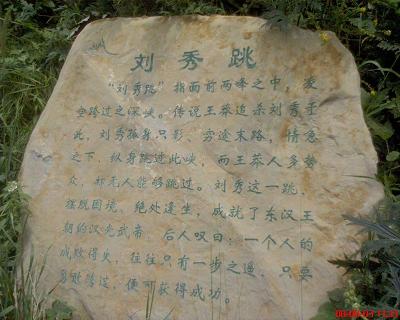 刘秀跳
“刘秀跳”指面前两峰之中，凌
空跨过之深峡。传说王莽追杀刘秀至
此，刘秀孤身只影，穷途末路，情急
之下，纵身跳过此峡，而王莽人多势
众，却无人能够跳过。刘秀这一跳，
摆脱困境，绝处逢生，成就了东汉王
朝的汉光武帝。后人叹曰：一个人的
成败得失，往往只有一步之遥，只要
勇敢跨过，便可获得成功。